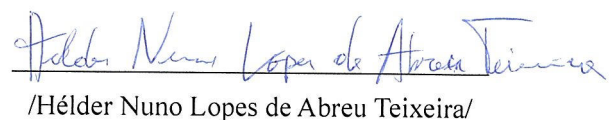 Hélder Nuno Lopes de Abreu Teixeira
/Hélder Nuno Lopes de Abreu Teixeira/